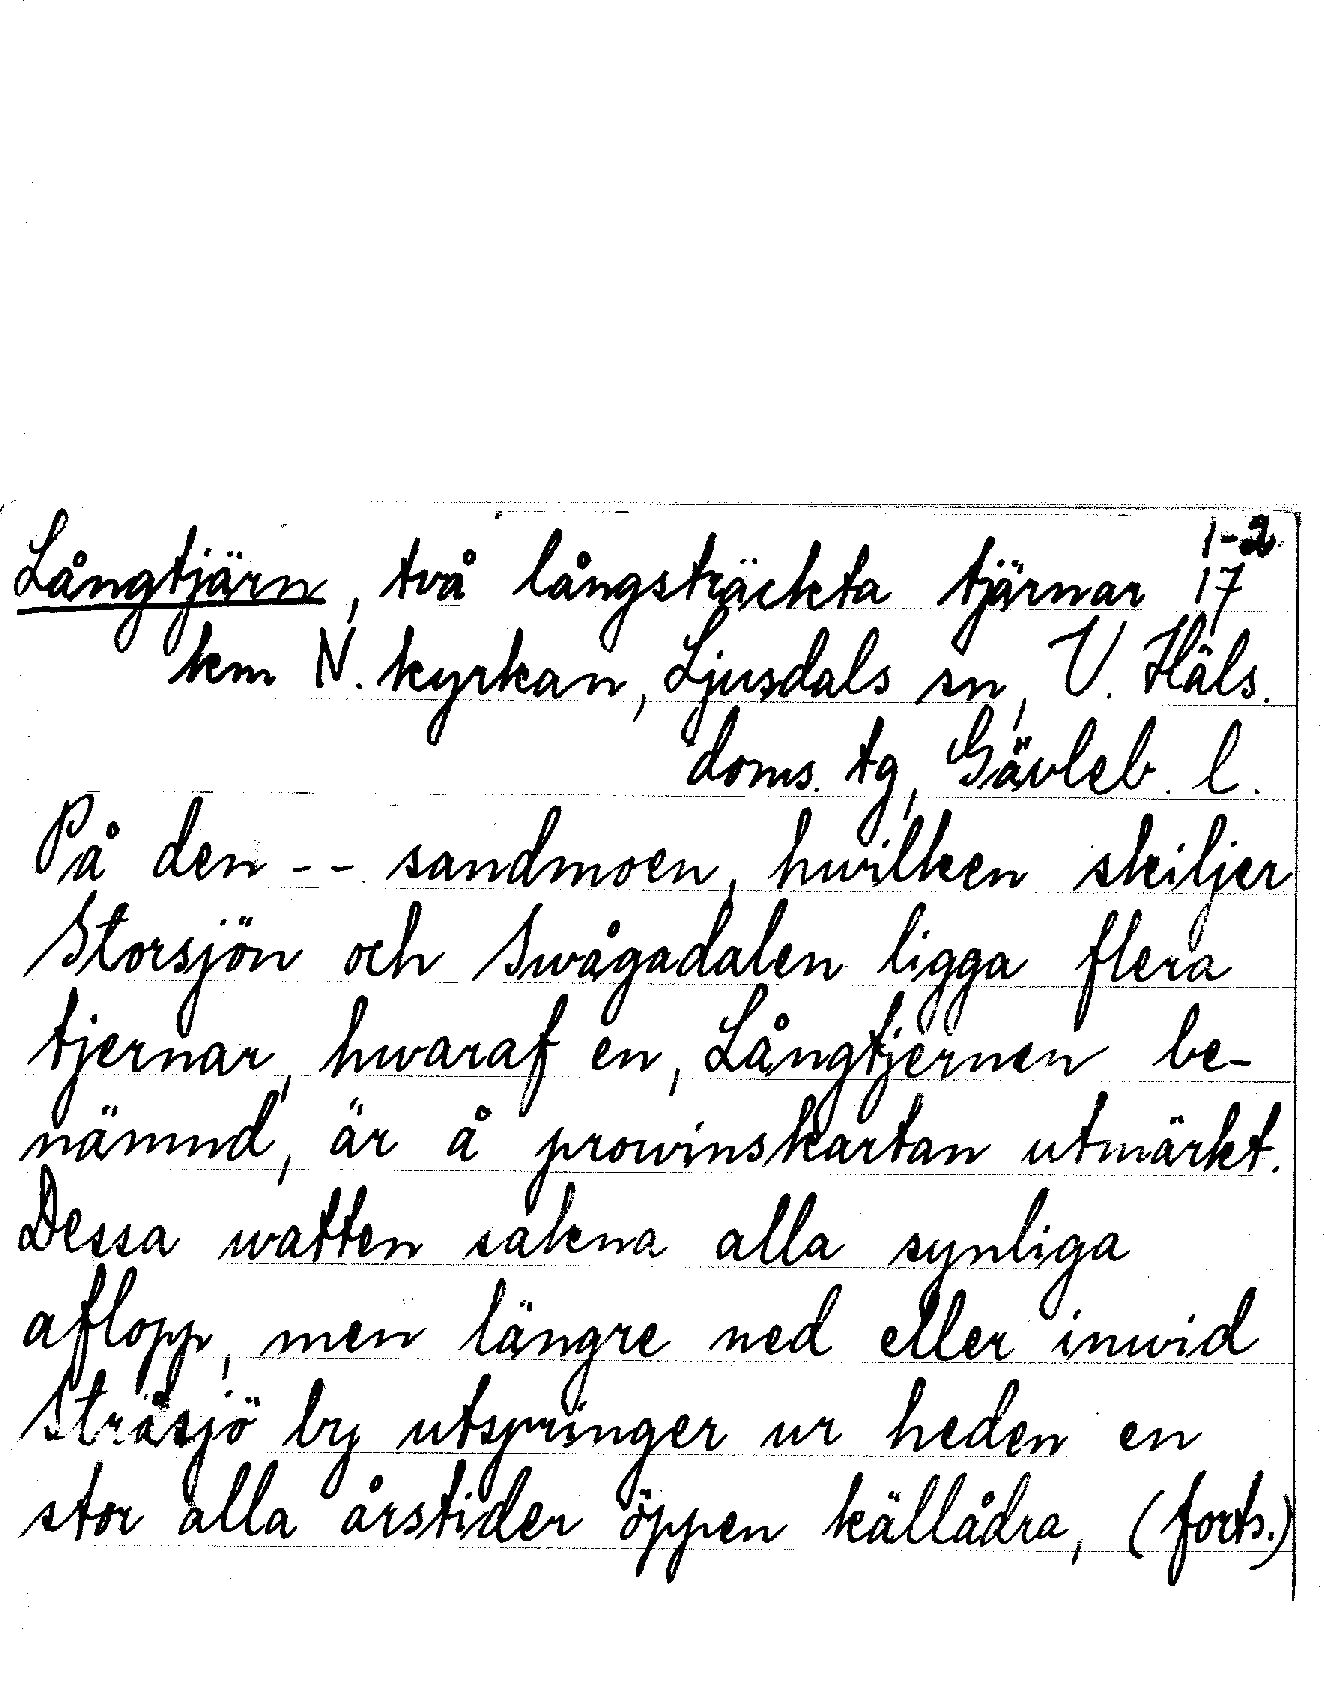 1-2
Långtjärn, två långsträckta tjärnar 17
km N. kyrkan, Ljusdals sn, V. Häls.
doms. tg, Gävleb. l.
På den -- sandmoen, hwilken skiljer
Storsjön och Swågadalen ligga flera
tjernar, hwaraf en, Långtjernen be-
nämnd, är å prowinskartan utmärkt.
Dessa watten sakna alla synliga
aflopp, men längre ned eller inwid
Stråsjö by utspringer ur heden en
stor alla årstider öppen källådra, (forts.)